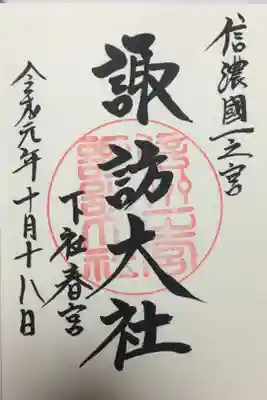 信濃國一之宮
諏訪大社
下社春宮
令和元年十月十八日